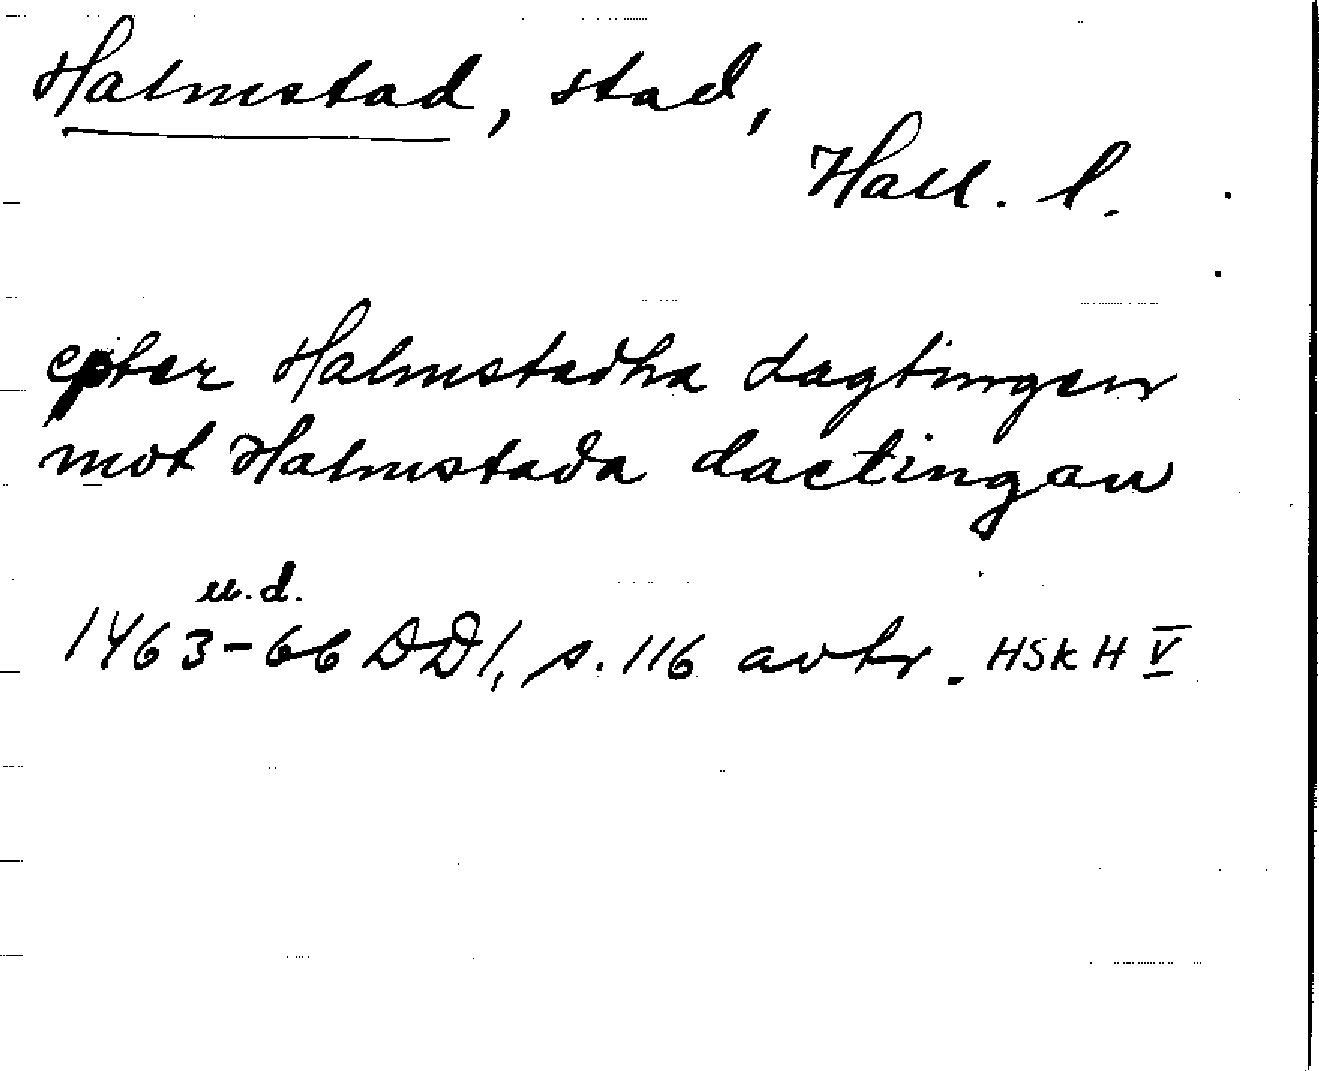 Halmstad, stad,
Hall. l.
epter Halmstadha dagtingen
mot Halmstada dactingan
u.d.
1463-66 DD1, s. 116 avskr. HSK H V